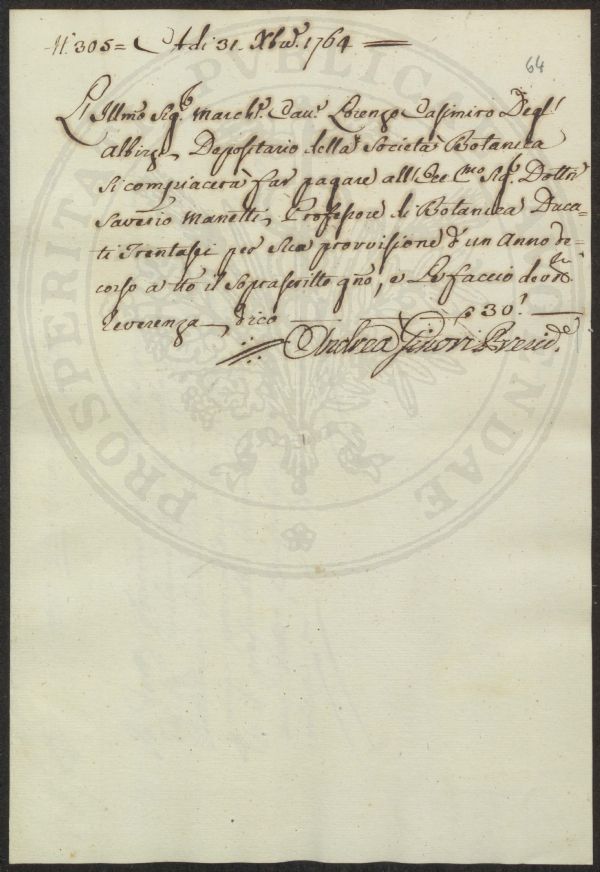 N.° 305 = Adi 31. Xbre. 1764
64
L'Illmo Sig.r March.e Cav.e Lorenzo Casimiro Degl'
Albizi Depositario della Società Botanica
si compiacerà far pagare all'Ecc.mo Sig.r Dottr
Saverio Manetti Professore di Botanica Duca=
ti Trentasei per sua provisione d'un Anno de=
corso a tto il soprascritto gno, e Le faccio devotma
reverenza, Dico 30.
Andrea Ginori Presid.e
PROSPERITATI PVBLICAE AVGENDAE